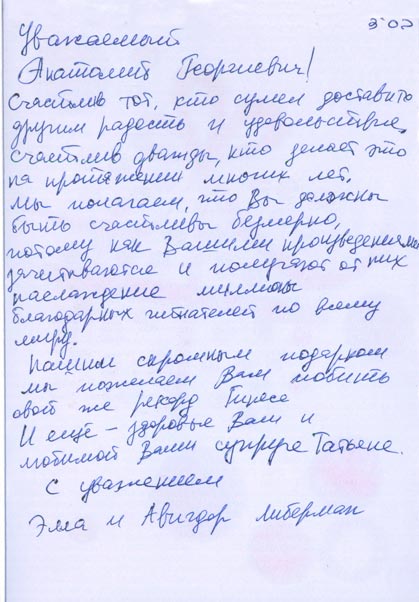 3:02
Уважаемый
Анатолий Георгиевич!
Счастлив тот, кто сумел доставить
другим радость и удовольствие,
счастлив дважды, кто делает это
на протяжении многих лет.
Мы полагаем, что Вы должны
быть счастливы безмерно,
потому как Вашими произведениями
зачитываются и получают от них
наслаждение миллионы
благодарных читателей по всему
миру.
Нашим скромным подарком
мы пожелаем Вам побить
свой же рекорд
И ещё – здоровья Вам и
любимой Вами супруге Татьяне.
С уважением
Элла и Авигдор Либерман